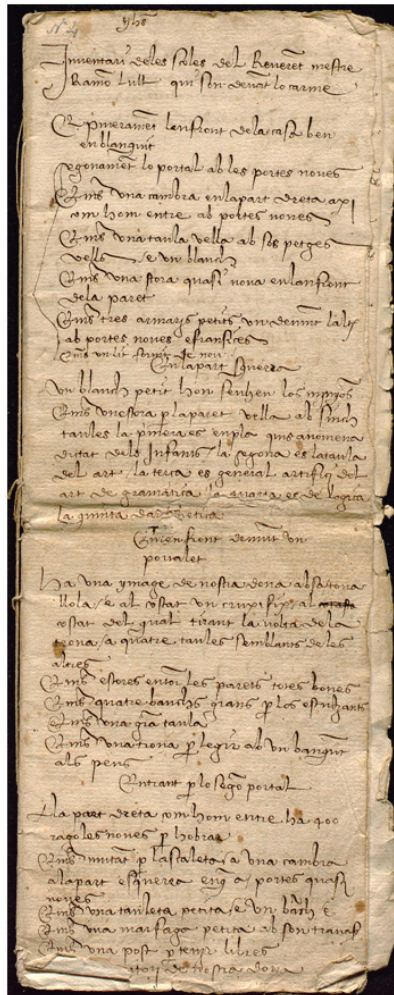 yhs
Inventari deles scoles del Reverent mestre
Ramon lull qui son devant lo carme
E primerament lenfront dela casa ben
enblanquit
segonament lo portal ab les portes noves
Una cambra en la part dreta axi
com hom entre ab portes noves
Una taula vella ab sos petges
vells e un banch
una stora quasi nova enlanfront
dela paret
tres armaris petits un demunt laltre
ab portes noves e
un lit de nou
En la part squerra
Un banch petit hon seuhen los minyons
una stora per la paret vella ab sinch
taules la primera es en pla quis anomena
dictat dels Infants la segona es la taula
del art la terça es general artifici del
art de gramatica la quarta es de logica
la quinta de
en front demunt un
portalet
Ha una ymage de nostra dona ab sa tova
llola e al costat un crucifix al
costat del qual tirant la volta dela
trona a quatre taules semblants deles
altres
estores entorn les parets totes bones
quatre banchs grans per los estudiants
una gran taula
una trona per legir ab un banquet
als peus
Entrant per lo segon portal
A la part dreta com hom entre ha 400
ragoles noves per hobrar
muntant per la scaleta a una cambra
a la part esquerra portes quasi
noves
una tauleta petita e un banch
una marfaga petita ab son
una post per tenir libres
de nostra dona